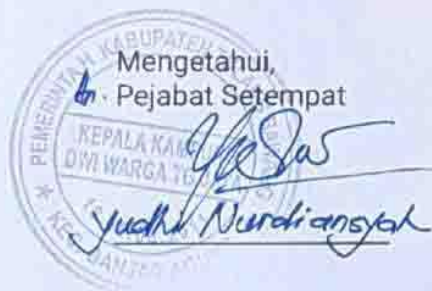 Mengetahui,
Pejabat Setempat
PEMERINTAH KABUPATEN
KEPALA KAM
DWI WARGA
Yudhi Nurdiansyah